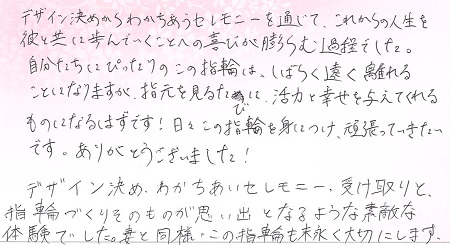 デザイン決めからわかちあうセレモニーを通じて、これからの人生を
彼と共に歩んでいくことへの喜びが膨らむ過程でした。
自分たちにぴったりのこの指輪は、しばらく遠く離れる
ことになりますが、指元を見るたびに、活力と幸せを与えてくれる
ものになるはずです!日々この指輪を身につけ、頑張っていきたい
です。ありがとうございました!
デザイン決め、わかちあいセレモニー、受け取りと、
指輪づくりそのものが思い出となるような素敵な
体験でした。妻と同様、この指輪も末永く大切にします。